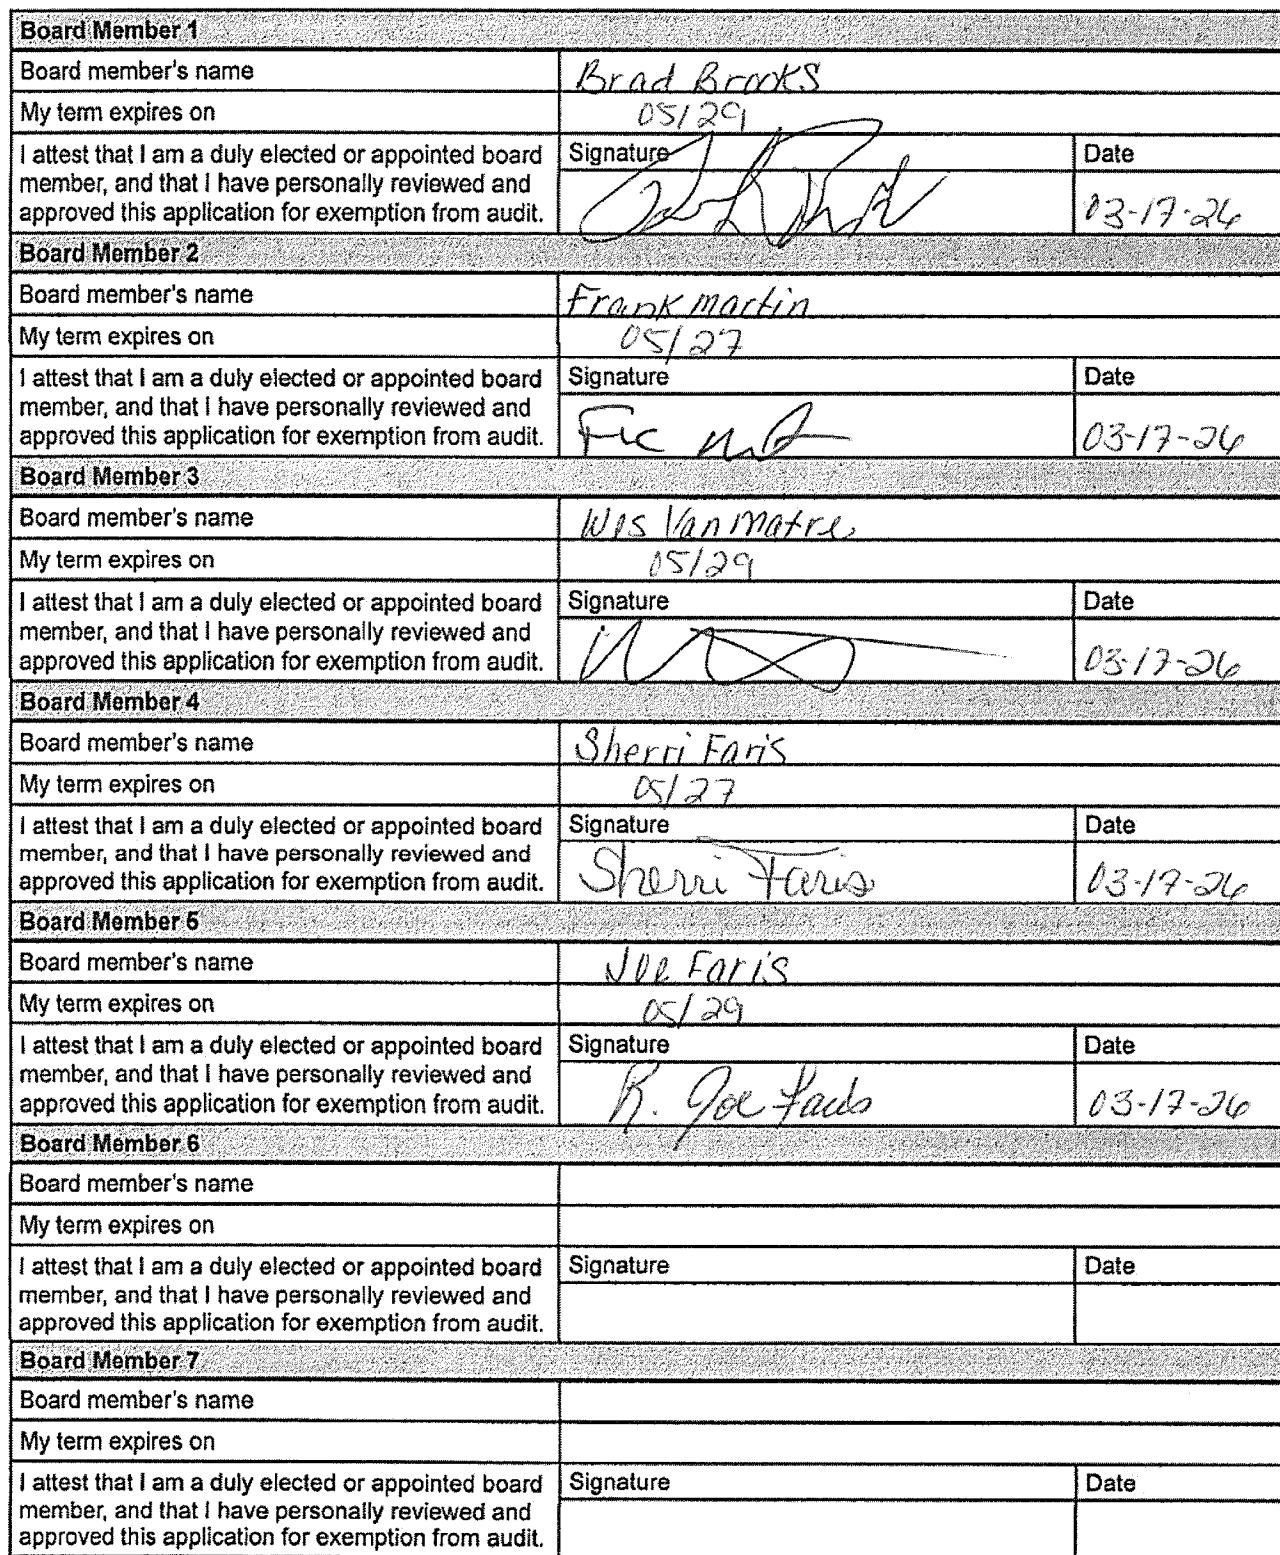 Board Member 1
Board member's name Brad Brooks
My term expires on 05/29
I attest that I am a duly elected or appointed board
member, and that I have personally reviewed and
approved this application for exemption from audit.
Signature Date
03-17-26
Board Member 2
Board member's name Frank Martin
My term expires on 05/27
I attest that I am a duly elected or appointed board
member, and that I have personally reviewed and
approved this application for exemption from audit.
Signature Date
03-17-26
Board Member 3
Board member's name Wes Van Matre
My term expires on 05/29
I attest that I am a duly elected or appointed board
member, and that I have personally reviewed and
approved this application for exemption from audit.
Signature Date
03-17-26
Board Member 4
Board member's name Sherri Faris
My term expires on 05/27
I attest that I am a duly elected or appointed board
member, and that I have personally reviewed and
approved this application for exemption from audit.
Signature Date
Sherri Faris 03-17-26
Board Member 5
Board member's name Joe Faris
My term expires on 05/29
I attest that I am a duly elected or appointed board
member, and that I have personally reviewed and
approved this application for exemption from audit.
Signature Date
R. Joe Faris 03-17-26
Board Member 6
Board member's name
My term expires on
I attest that I am a duly elected or appointed board
member, and that I have personally reviewed and
approved this application for exemption from audit.
Signature Date
Board Member 7
Board member's name
My term expires on
I attest that I am a duly elected or appointed board
member, and that I have personally reviewed and
approved this application for exemption from audit.
Signature Date